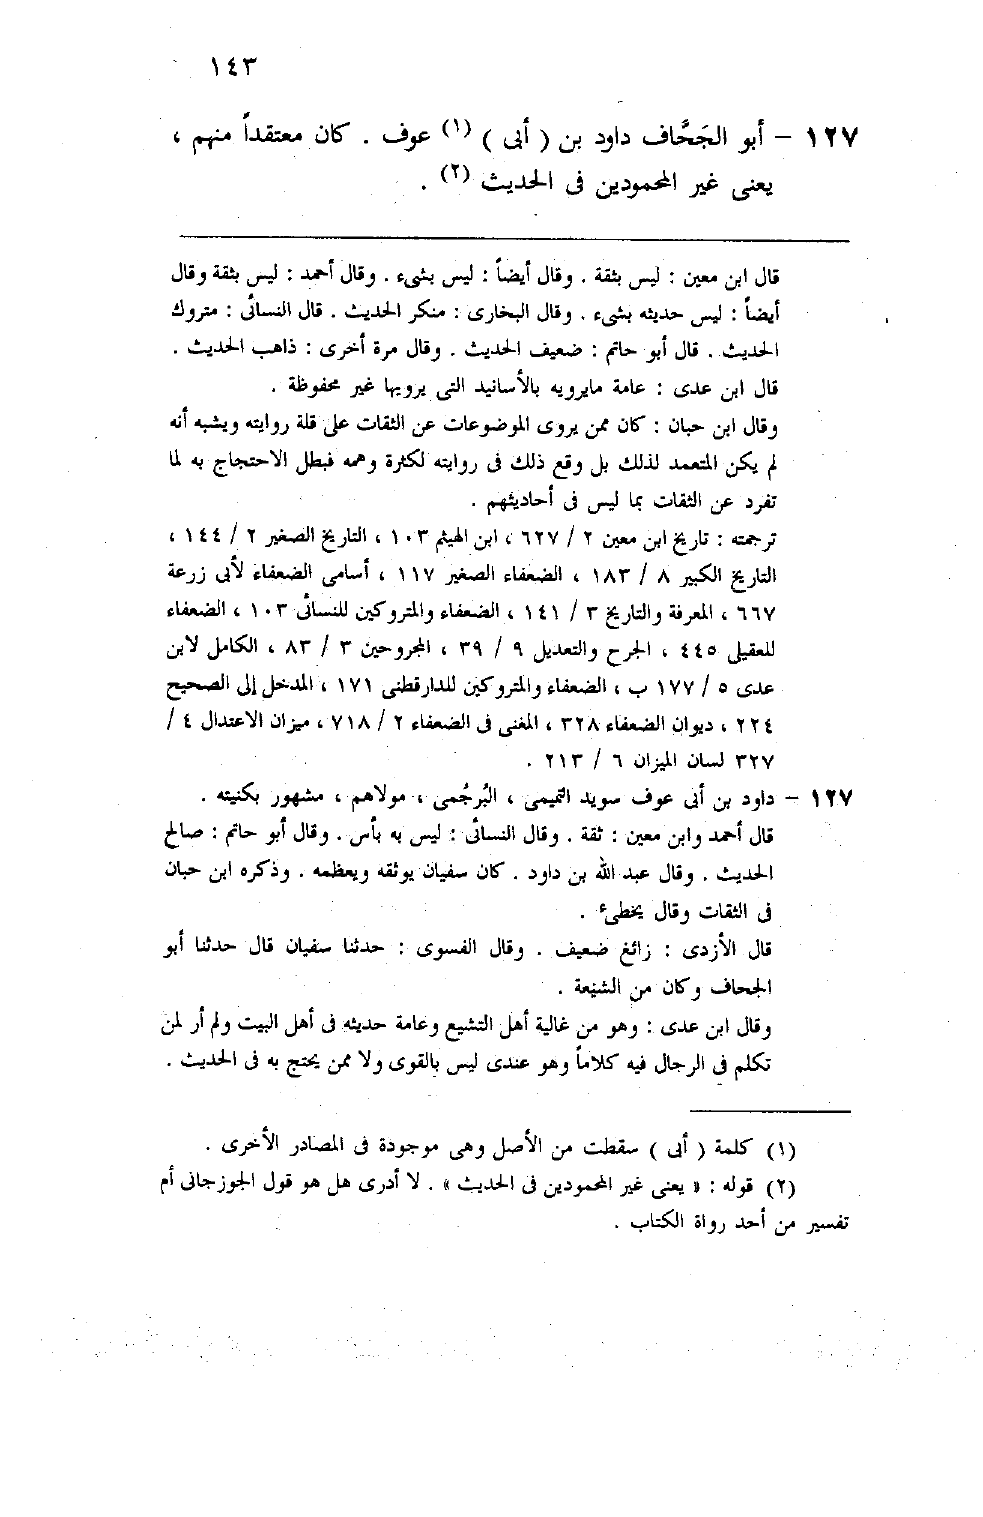 ١٤٣
١٢٧ – أبو الجَحَّاف داود بن ( أبى ) (١) عوف . كان معتقداً منهم ،
يعنى غير المحمودين فى الحديث (٢) .
قال ابن معين : ليس بثقة . وقال أيضاً : ليس بشىء . وقال أحمد : ليس بثقة وقال
أيضاً : ليس حديثه بشىء . وقال البخارى : منكر الحديث . قال النسائى : متروك
الحديث . قال أبو حاتم : ضعيف الحديث . وقال مرة أخرى : ذاهب الحديث .
قال ابن عدى : عامة مايرويه بالأسانيد التى يرويها غير محفوظة .
وقال ابن حبان : كان ممن يروى الموضوعات عن الثقات على قلة روايته ويشبه أنه
لم يكن المتعمد لذلك بل وقع ذلك فى روايته لكثرة وهمه فبطل الاحتجاج به لما
تفرد عن الثقات بما ليس فى أحاديثهم .
ترجمته : تاريخ ابن معين ٢ / ٦٢٧ ، ابن الهيثم ١٠٣ ، التاريخ الصغير ٢ / ١٤٤ ،
التاريخ الكبير ٨ / ١٨٣ ، الضعفاء الصغير ١١٧ ، أسامى الضعفاء لأبى زرعة
٦٦٧ ، المعرفة والتاريخ ٣ / ١٤١ ، الضعفاء والمتروكين للنسائى ١٠٣ ، الضعفاء
للعقيلى ٤٤٥ ، الجرح والتعديل ٩ / ٣٩ ، المجروحين ٣ / ٨٣ ، الكامل لابن
عدى ٥ / ١٧٧ ب ، الضعفاء والمتروكين للدارقطنى ١٧١ ، المدخل إلى الصحيح
٢٢٤ ، ديوان الضعفاء ٣٢٨ ، المغنى فى الضعفاء ٢ / ٧١٨ ، ميزان الاعتدال ٤ /
٣٢٧ لسان الميزان ٦ / ٢١٣ .
١٢٧ – داود بن أبى عوف سويد التميمى ، البُرجُمى ، مولاهم ، مشهور بكنيته .
قال أحمد وابن معين : ثقة . وقال النسائى : ليس به بأس . وقال أبو حاتم : صالح
الحديث . وقال عبد الله بن داود . كان سفيان يوثقه ويعظمه . وذكره ابن حبان
فى الثقات وقال يخطىء .
قال الأزدى : زائغ ضعيف . وقال الفسوى : حدثنا سفيان قال حدثنا أبو
الجحاف وكان من الشيعة .
وقال ابن عدى : وهو من غالية أهل التشيع وعامة حديثه فى أهل البيت ولم أر لمن
تكلم فى الرجال فيه كلاماً وهو عندى ليس بالقوى ولا ممن يحتج به فى الحديث .
(١) كلمة ( أبى ) سقطت من الأصل وهى موجودة فى المصادر الأخرى .
(٢) قوله : « يعنى غير المحمودين فى الحديث » . لا أدرى هل هو قول الجوزجانى أم
تفسير من أحد رواة الكتاب .